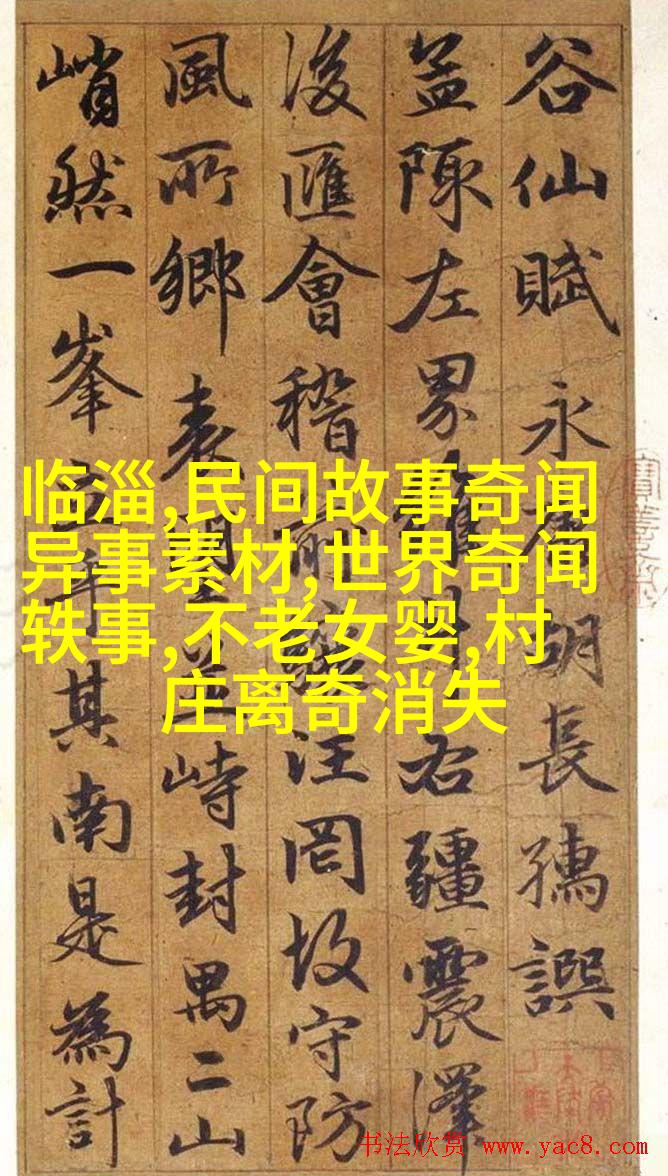 谷仙賦 永胡長孺譔
陳左界右疆震澤
後匯會稽汪罔故守防
風所鄉表峙封禺二山
峭然一峯其南是為計
临淄,民间故事奇闻
异事素材,世界奇闻
轶事,不老女婴,村
庄离奇消失
书法欣赏 www.yac8.com